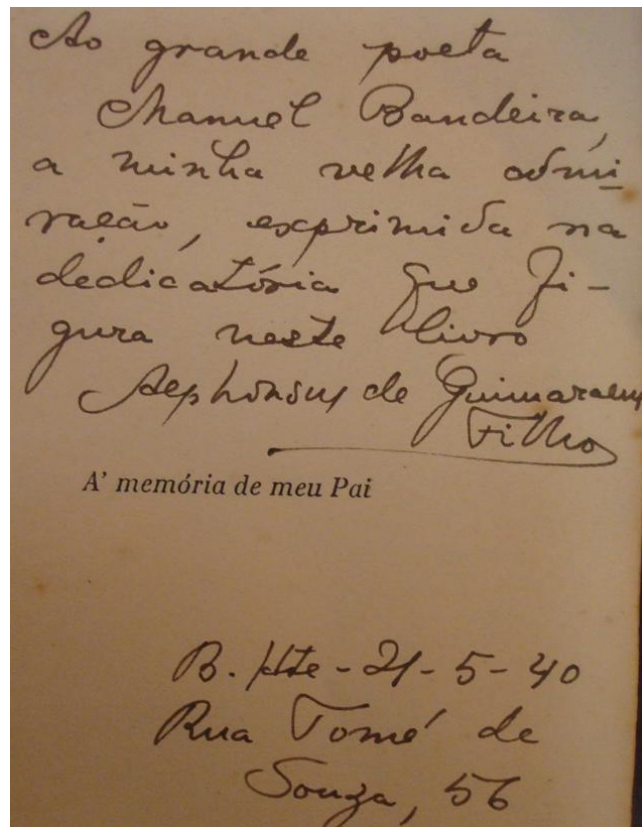 Ao grande poeta
Manuel Bandeira,
a minha velha admi
ração, exprimida na
dedicatória que fi-
gura neste livro
Alphonsus de Guimaraens
Filho
A' memória de meu Pai
B. Hte - 21-5-40
Rua Tomé de
Souza, 56